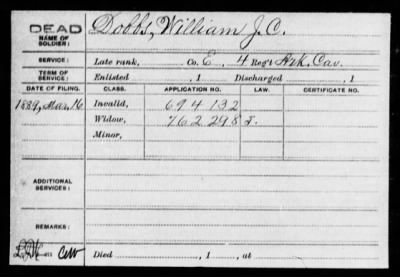 DEAD
NAME OF SOLDIER: Dobbs, William J. C.
SERVICE: Late rank, Co. E, 4 Reg't Ark. Cav.
TERM OF SERVICE: Enlisted , 1 Discharged , 1
DATE OF FILING. CLASS. APPLICATION NO. LAW. CERTIFICATE NO.
1889, Mar. 16 Invalid, 694 132
Widow, 762 298
Minor,
ADDITIONAL SERVICES:
REMARKS:
Died , 1 , at